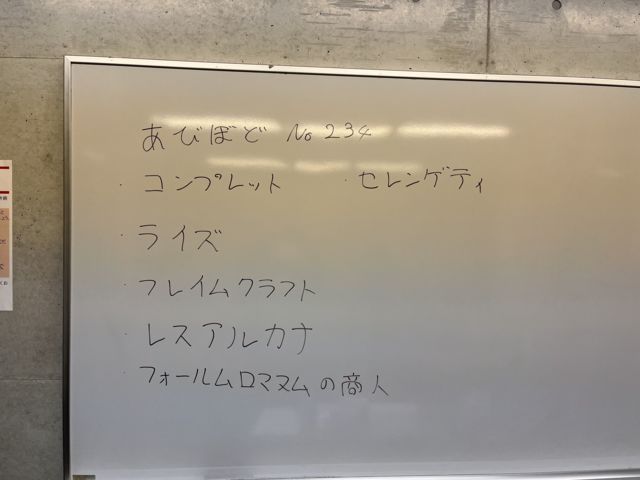 あびぼど No 234
・コンプレット ・セレンゲティ
・ライズ
・フレイムクラフト
・レスアルカナ
・フォールムロマヌムの商人